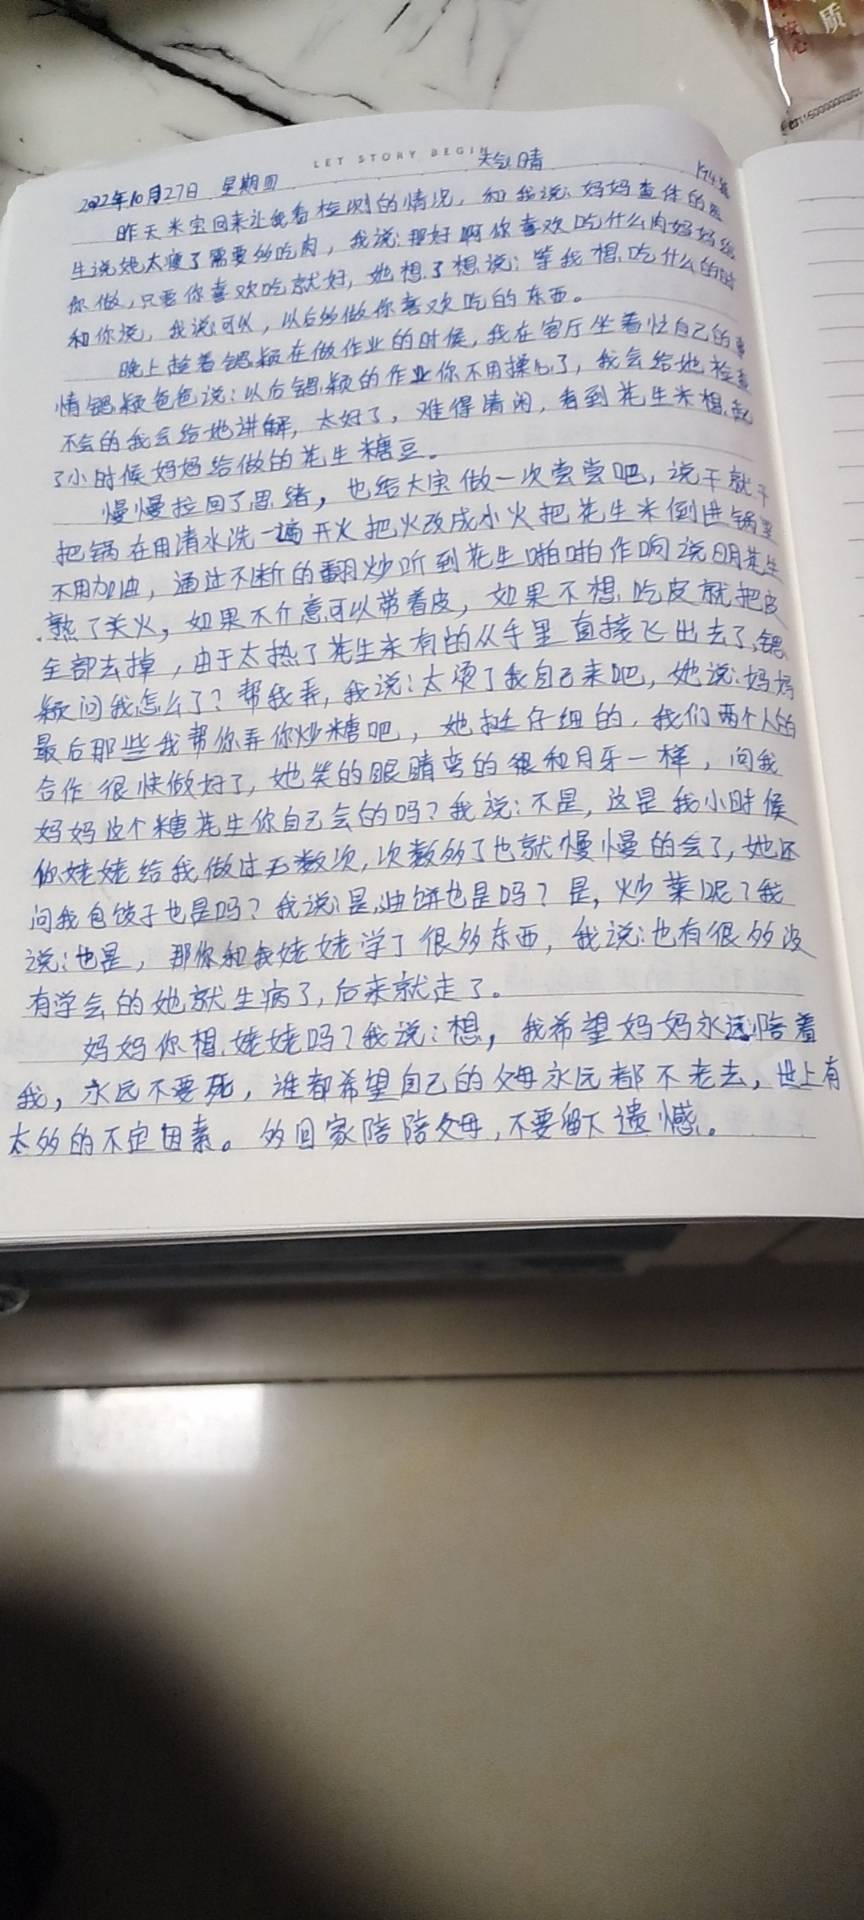 质
LET STORY BEGIN
2022年10月27日 星期四 天气晴
昨天米宝回来让我看检测的情况，和我说：妈妈查体的医
生说她太瘦了需要多吃肉，我说：那好啊你喜欢吃什么肉妈妈给
你做，只要你喜欢吃就好，她想了想说：等我想吃什么的时
和你说，我说：可以，以后多做你喜欢吃的东西。
晚上趁着锶颖在做作业的时候，我在客厅坐着忙自己的事
情锶颖爸爸说：以后锶颖的作业你不用操心了，我会给她检查
不会的我会给她讲解，太好了，难得清闲，看到花生米想起
了小时候妈妈给做的花生糖豆。
慢慢拉回了思绪，也给大宝做一次尝尝吧，说干就干
把锅在用清水洗一遍开火把火改成小火把花生米倒进锅里
不用加油，通过不断的翻炒听到花生啪啪作响说明花生
熟了关火，如果不介意可以带着皮，如果不想吃皮就把皮
全部去掉，由于太热了花生米有的从手里直接飞出去了，锶
颖问我怎么了？帮我弄，我说：太烫了我自己来吧，她说：妈妈
最后那些我帮你弄你炒糖吧，她挺仔细的，我们两个人的
合作很快做好了，她笑的眼睛弯的很和月牙一样，问我
妈妈这个糖花生你自己会的吗？我说：不是，这是我小时候
你姥姥给我做过无数次，次数多了也就慢慢的会了，她还
问我包饺子也是吗？我说：是，油饼也是吗？是，炒菜呢？我
说：也是，那你和我姥姥学了很多东西，我说：也有很多没
有学会的她就生病了，后来就走了。
妈妈你想姥姥吗？我说：想，我希望妈妈永远陪着
我，永远不要死，谁都希望自己的父母永远都不老去，世上有
太多的不定因素。多回家陪陪父母，不要留下遗憾。